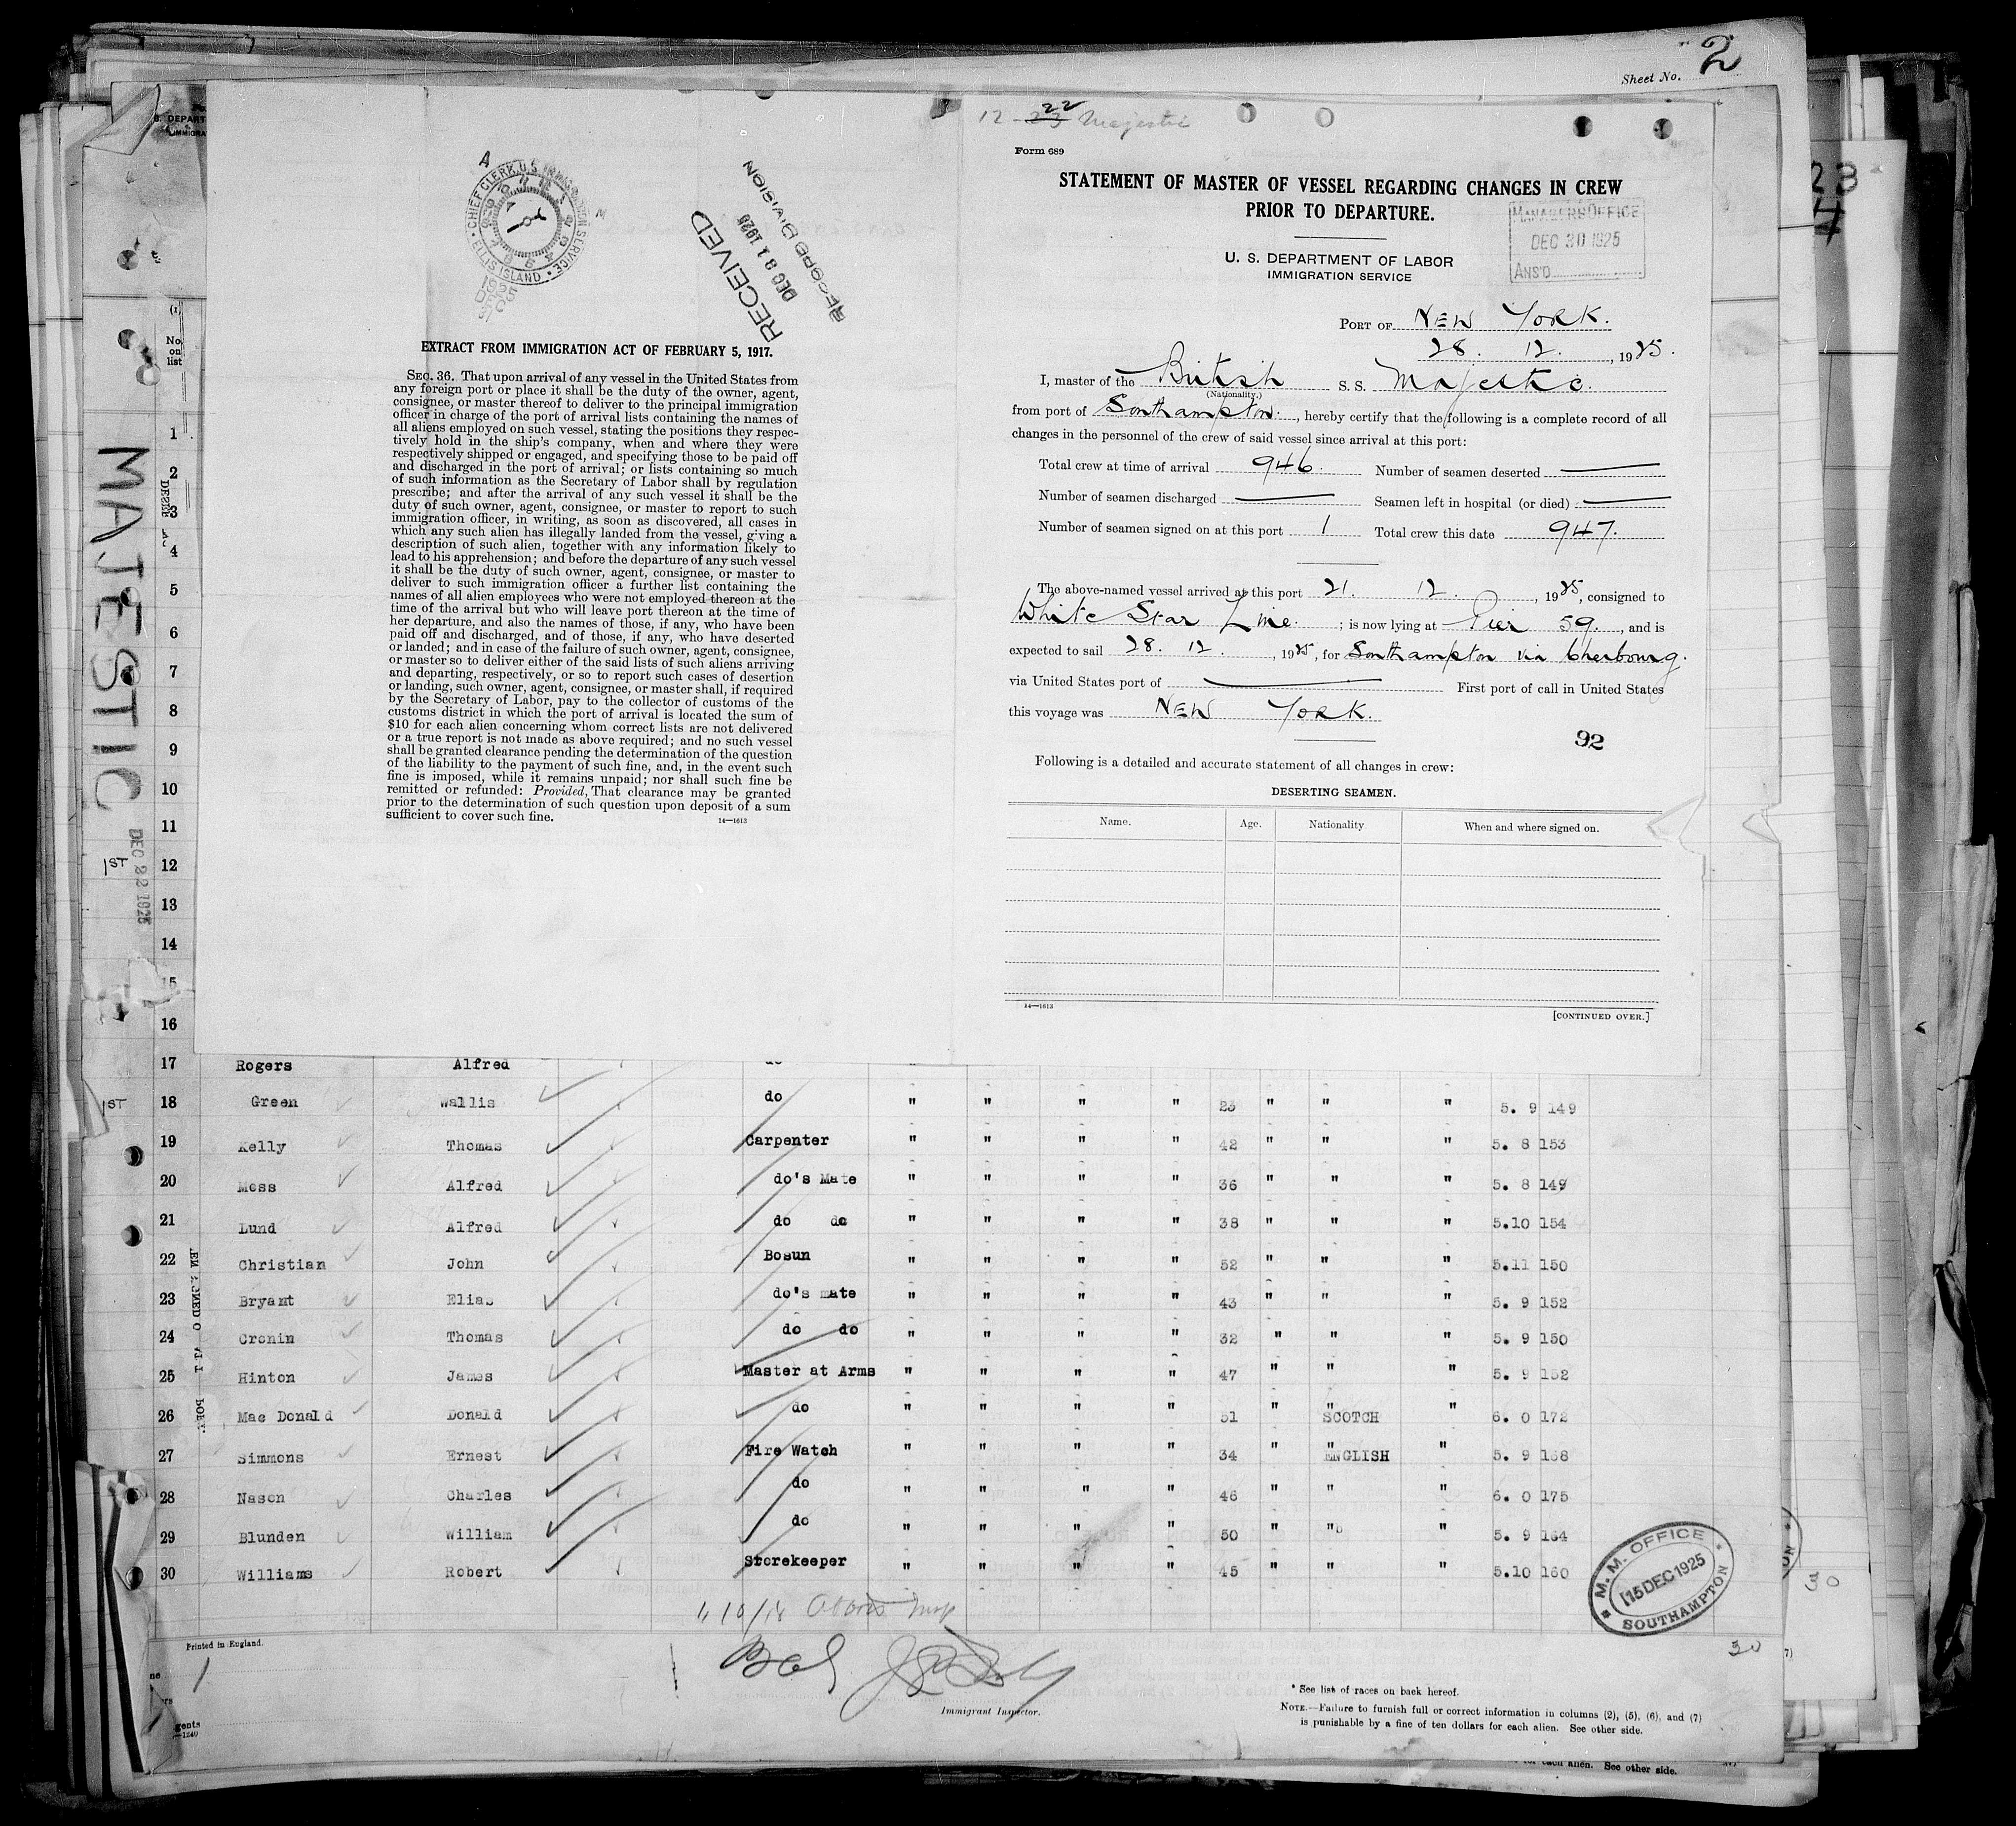 Sheet No. 2
12-23 22 Majestic
Form 689
STATEMENT OF MASTER OF VESSEL REGARDING CHANGES IN CREW
PRIOR TO DEPARTURE.
MANAGERS OFFICE
DEC 30 1925
ANS'D
U. S. DEPARTMENT OF LABOR
IMMIGRATION SERVICE
PORT OF NEW YORK.
28. 12. , 1925.
I, master of the British S. S. Majestic.
(Nationality.)
from port of Southampton. , hereby certify that the following is a complete record of all
changes in the personnel of the crew of said vessel since arrival at this port:
Total crew at time of arrival 946. Number of seamen deserted —
Number of seamen discharged — Seamen left in hospital (or died) —
Number of seamen signed on at this port 1 Total crew this date 947.
The above-named vessel arrived at this port 21. 12. , 1925, consigned to
White Star Line. ; is now lying at Pier 59. , and is
expected to sail 28. 12. , 1925, for Southampton via Cherbourg.
via United States port of — First port of call in United States
this voyage was NEW YORK.
92
Following is a detailed and accurate statement of all changes in crew:
DESERTING SEAMEN.
Name. Age. Nationality When and where signed on.
14—1613
[CONTINUED OVER.]
CHIEF CLERK, U.S. IMMIGRATION SERVICE
ELLIS ISLAND
1925
DEC
RECEIVED
DEC 31 1925
RECORD DIVISION
EXTRACT FROM IMMIGRATION ACT OF FEBRUARY 5, 1917.
SEC. 36. That upon arrival of any vessel in the United States from
any foreign port or place it shall be the duty of the owner, agent,
consignee, or master thereof to deliver to the principal immigration
officer in charge of the port of arrival lists containing the names of
all aliens employed on such vessel, stating the positions they respec-
tively hold in the ship's company, when and where they were
respectively shipped or engaged, and specifying those to be paid off
and discharged in the port of arrival; or lists containing so much
of such information as the Secretary of Labor shall by regulation
prescribe; and after the arrival of any such vessel it shall be the
duty of such owner, agent, consignee, or master to report to such
immigration officer, in writing, as soon as discovered, all cases in
which any such alien has illegally landed from the vessel, giving a
description of such alien, together with any information likely to
lead to his apprehension; and before the departure of any such vessel
it shall be the duty of such owner, agent, consignee, or master to
deliver to such immigration officer a further list containing the
names of all alien employees who were not employed thereon at the
time of the arrival but who will leave port thereon at the time of
her departure, and also the names of those, if any, who have been
paid off and discharged, and of those, if any, who have deserted
or landed; and in case of the failure of such owner, agent, consignee,
or master so to deliver either of the said lists of such aliens arriving
and departing, respectively, or so to report such cases of desertion
or landing, such owner, agent, consignee, or master shall, if required
by the Secretary of Labor, pay to the collector of customs of the
customs district in which the port of arrival is located the sum of
$10 for each alien concerning whom correct lists are not delivered
or a true report is not made as above required; and no such vessel
shall be granted clearance pending the determination of the question
of the liability to the payment of such fine, and, in the event such
fine is imposed, while it remains unpaid; nor shall such fine be
remitted or refunded: Provided, That clearance may be granted
prior to the determination of such question upon deposit of a sum
sufficient to cover such fine.
14—1613
MAJESTIC
DEC 22 1925
(1)
No. on list
1
2
3
4
5
6
7
8
9
10
11
1ST 12
13
14
15
16
17 Rogers Alfred do
1ST 18 Green Wallis do " " " " 23 " " " 5. 9 149
19 Kelly Thomas Carpenter " " " " 42 " " " 5. 8 153
20 Moss Alfred do's Mate " " " " 36 " " " 5. 8 149
21 Lund Alfred do do " " " " 38 " " " 5.10 154
22 Christian John Bosun " " " " 52 " " " 5.11 150
23 Bryant Elias do's mate " " " " 43 " " " 5. 9 152
24 Cronin Thomas do do " " " " 32 " " " 5. 9 150
25 Hinton James Master at Arms " " " " 47 " " " 5. 9 152
26 Mac Donald Donald do " " " " 51 " " SCOTCH " 6. 0 172
27 Simmons Ernest Fire Watch " " " " 34 " " ENGLISH " 5. 9 158
28 Nason Charles do " " " " 46 " " " 6. 0 175
29 Blunden William do " " " " 50 " " " 5. 9 164
30 Williams Robert Storekeeper " " " " 45 " " " 5.10 160
M. M. OFFICE
15 DEC 1925
SOUTHAMPTON
Printed in England.
30
Immigrant Inspector.
* See list of races on back hereof.
NOTE.—Failure to furnish full or correct information in columns (2), (5), (6), and (7)
is punishable by a fine of ten dollars for each alien. See other side.
for each alien. See other side.